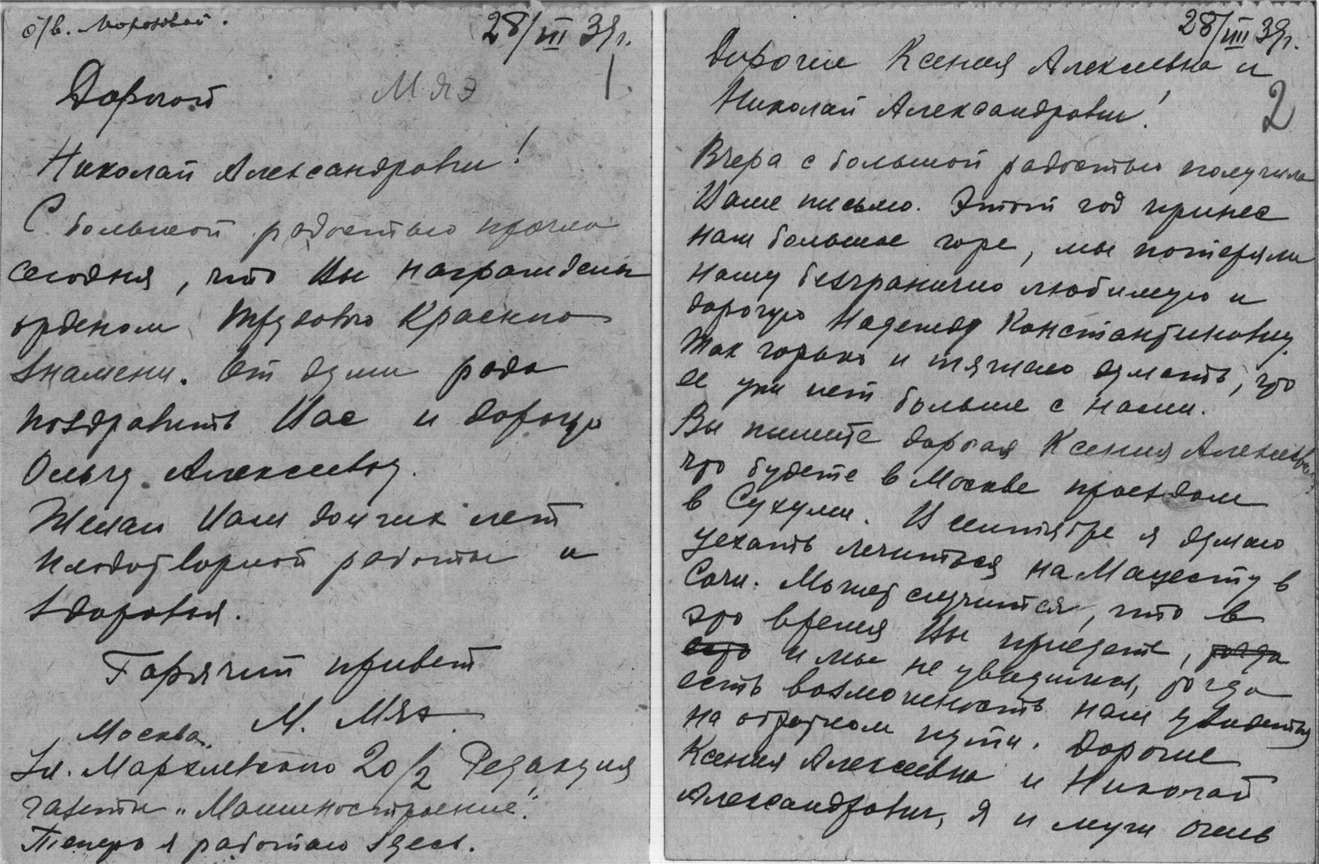 о/в. Морозовой.
28/III 39г.
1
МЯЭ
Дорогой
Николай Александрович!
С большой радостью прочла
сегодня, что Вы награждены
орденом Трудового Красного
Знамени. От души рада
поздравить Вас и дорогую
Ольгу Алексеевну.
Желаю Вам долгих лет
плодотворной работы и
здоровья.
Горячий привет
М. Мяэ
Москва.
Ул. Мархлевского 20/2 Редакция
газеты „Машиностроение“.
Теперь я работаю здесь.
28/III 39г.
2
Дорогие Ксения Алексеевна и
Николай Александрович!
Вчера с большой радостью получила
Ваше письмо. Этот год принес
нам большое горе, мы потеряли
нашу безгранично любимую и
дорогую Надежду Константиновну.
Так горько и тяжело думать, что
ее уже нет больше с нами.
Вы пишете дорогая Ксения Алексеевна,
что будете в Москве проездом
в Сухуми. В сентябре я думаю
уехать лечиться на Мацесту в
Сочи. Может случится, что в
это время Вы приедете, тогда
и мы не увидимся, тогда
есть возможность нам увидеться
на обратном пути. Дорогие
Ксения Алексеевна и Николай
Александрович, я и муж очень